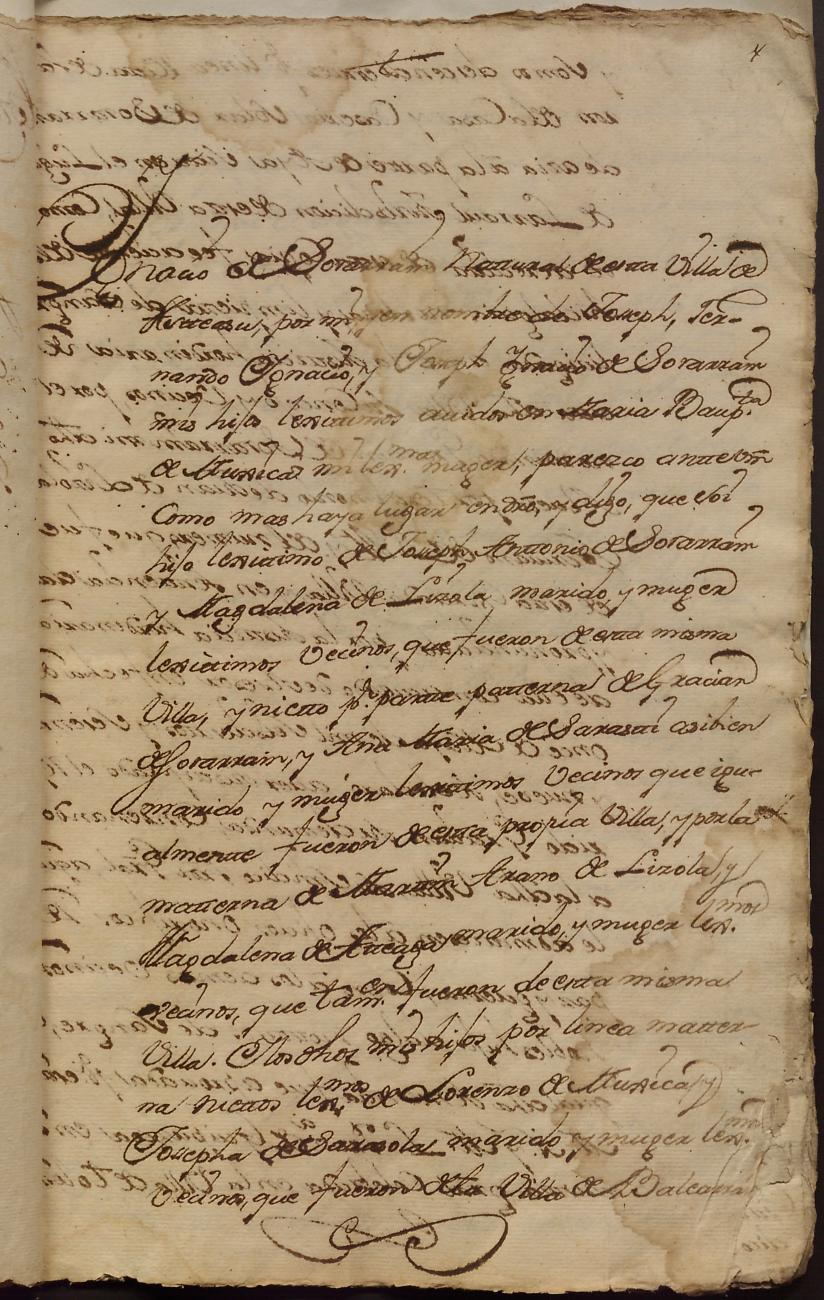 Ignacio de Sorarrain Natural de esta Villa de
por mi, y en nombre de Joseph, Fer-
nando Ignacio, y Joseph Ignacio de Sorarrain
mis hijos lexitimos avidos en Maria Baup.ta
de Muxica mi lex.ma muger, parezco ante Vm
Como mas haya lugar en dro, y digo, que soi
hijo lexitimo de Joseph Antonio de Sorarrain
y Magdalena de Lizola marido, y muger
lexitimos Vecinos, que fueron de esta misma
Villa, y nietto p.r parte patterna de Gracian
de Sorarrain, y Ana Maria de Sarasti asibien
marido y muger lexitimos Vecinos que igu-
almente fueron de esta propia Villa, y por la
matterna de Martin Arano de Lizola, y
Magdalena de Areaga marido, y muger lex.mos
Vecinos, que tam.en fueron de esta misma
Villa. Y los dhos mis hijos por linea matter-
na niettos lex.mos de Lorenzo de Muxica, y
Josepha de Sarasola marido, y muger lex.mos
Vecinos, que fueron de la Villa de